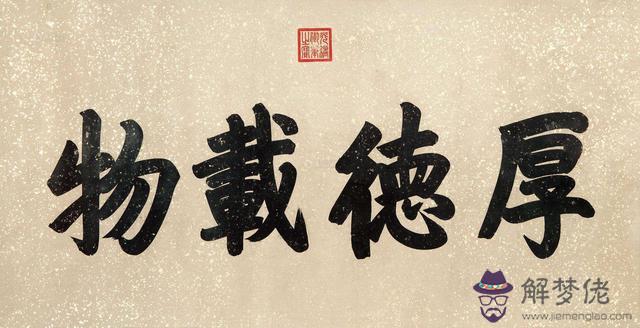 厚德載物
解梦佬
www.jiemenglao.com